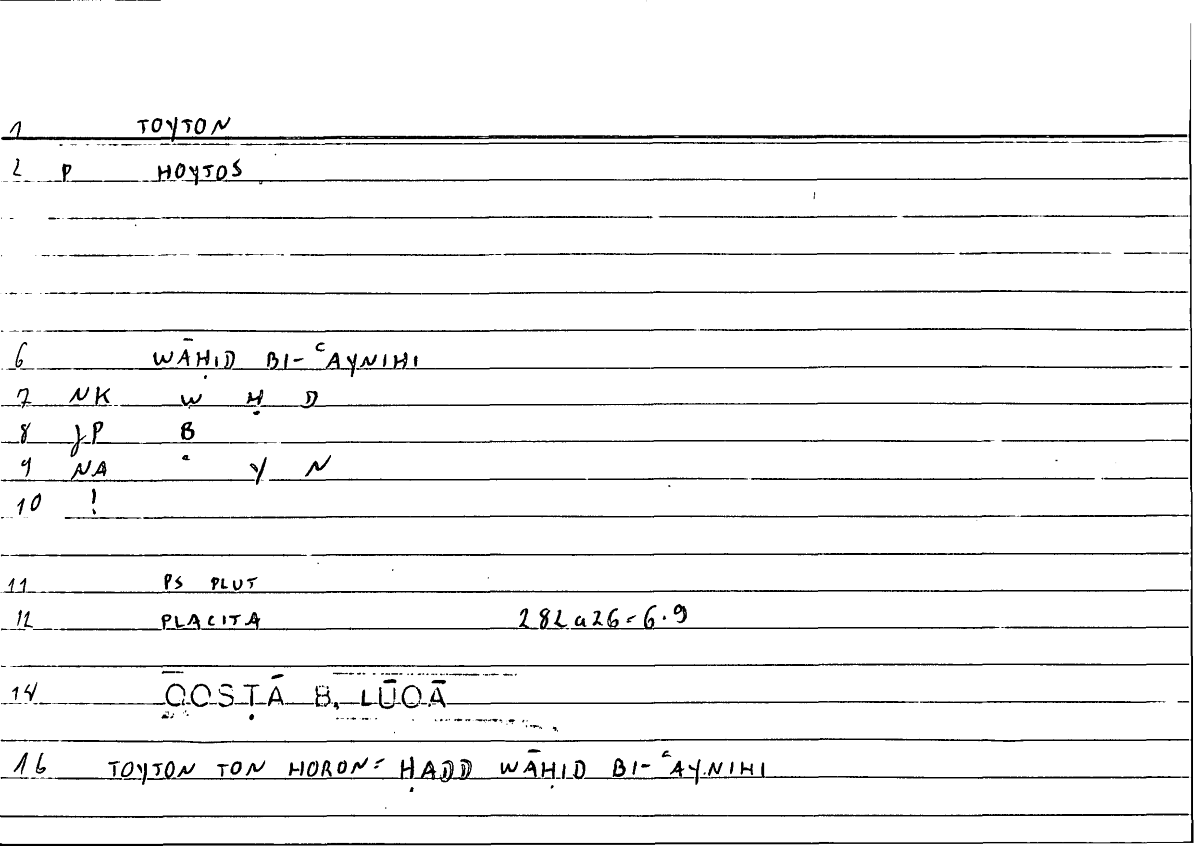 1 TOYTON
2 P HOYTOS
6 WĀḤID BI-ʿAYNIHI
7 NK W Ḥ D
8 JP B
9 NA ʿ Y N
10 !
11 PS PLUT
12 PLACITA 282a26=6.9
14 QOSṬĀ B. LŪQĀ
16 TOYTON TON HORON= ḤADD WĀḤID BI-ʿAYNIHI